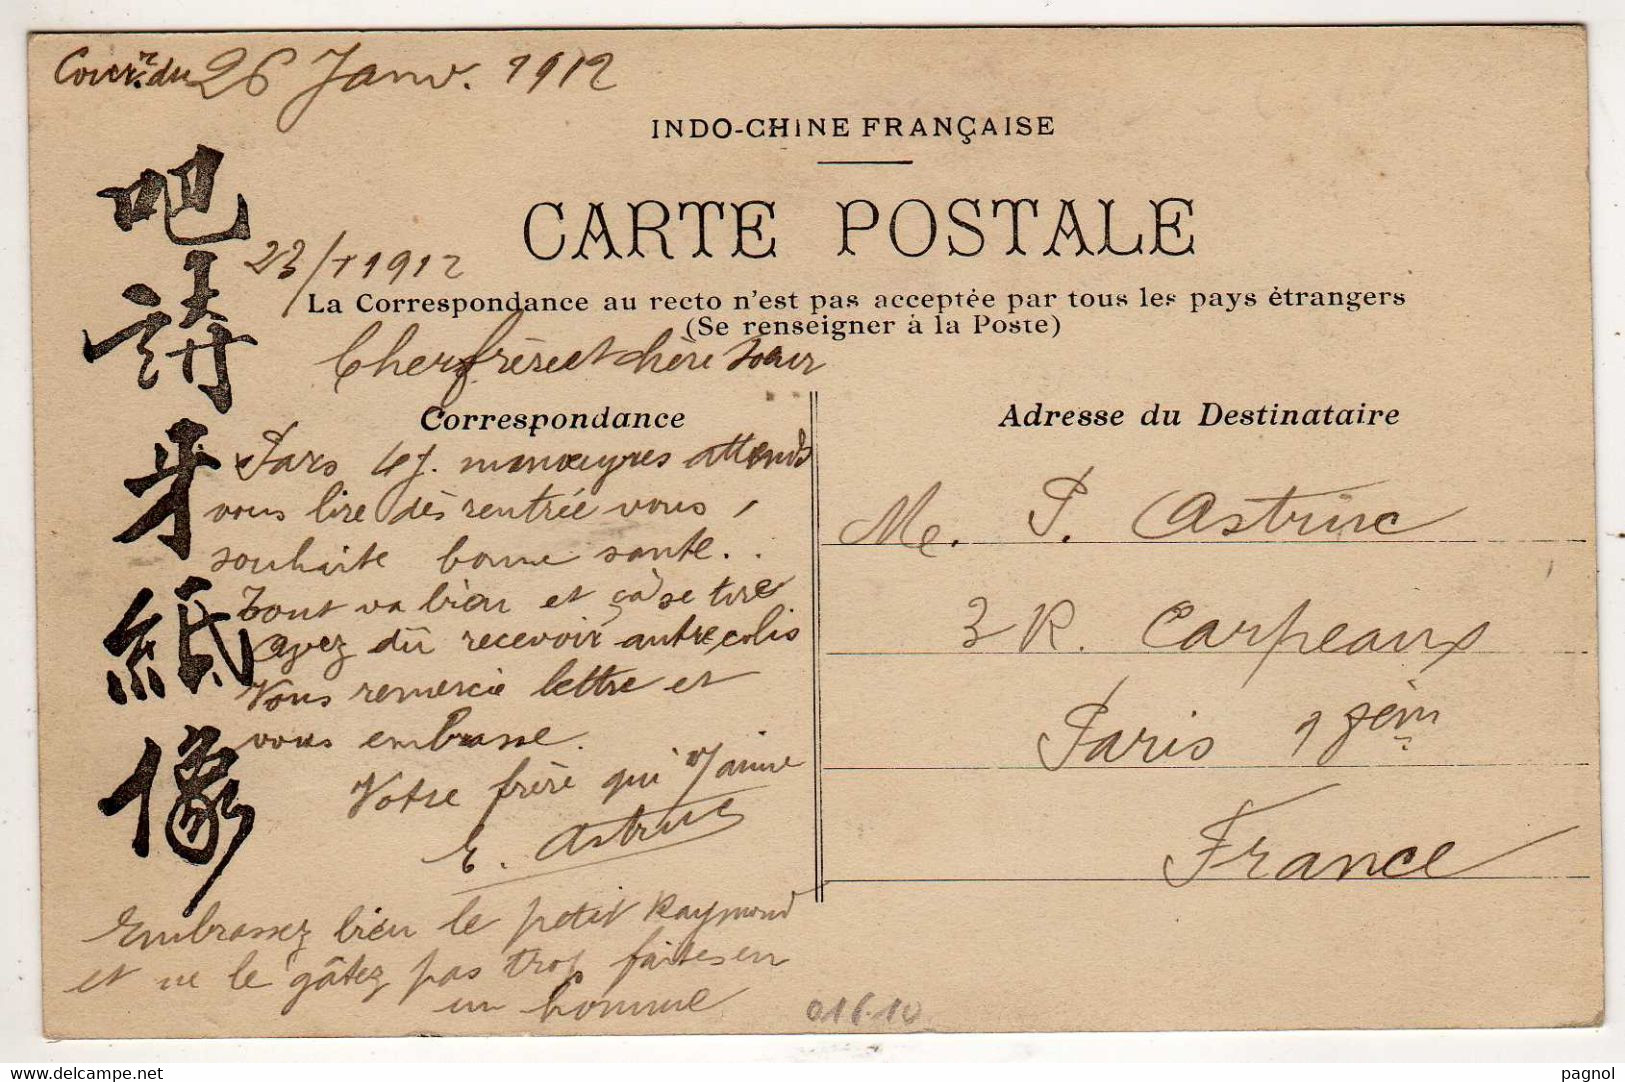 Courr. du 26 Janv. 1912
INDO-CHINE FRANÇAISE
CARTE POSTALE
23/1 1912
La Correspondance au recto n'est pas acceptée par tous les pays étrangers
(Se renseigner à la Poste)
Cher frère et chère sœur
Correspondance
Adresse du Destinataire
Pars 4 j. manœuvres attends
vous lire dès rentrée vous
souhaite bonne santé..
Tout va bien et çà se tire
avez dû recevoir autre colis
Vous remercie lettre et
vous embrasse.
Votre frère qui v. aime
E. Astruc
Embrassez bien le petit Raymond
et ne le gâtez pas trop faites en
un homme
吧
詩
牙
紙
像
Me. P. Astruc
3 R. Carpeaux
Paris 18èm
France
016.10
www.delcampe.net
pagnol